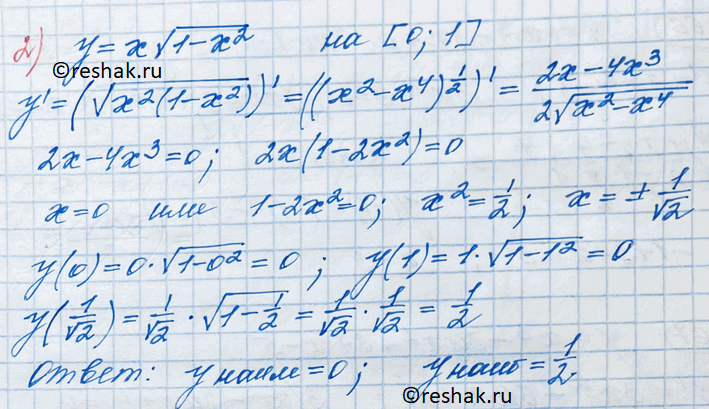 2) y = x√(1-x²) на [0; 1]
©reshak.ru
y' = (√(x²(1-x²)))' = ((x²-x⁴)^(1/2))' = (2x-4x³)/(2√(x²-x⁴))
2x-4x³=0; 2x(1-2x²)=0
x=0 или 1-2x²=0; x²=1/2; x=±1/√2
y(0)=0·√(1-0²)=0; y(1)=1·√(1-1²)=0
y(1/√2)=1/√2·√(1-1/2)=1/√2·1/√2=1/2
Ответ: y наим=0; y наиб=1/2.
©reshak.ru